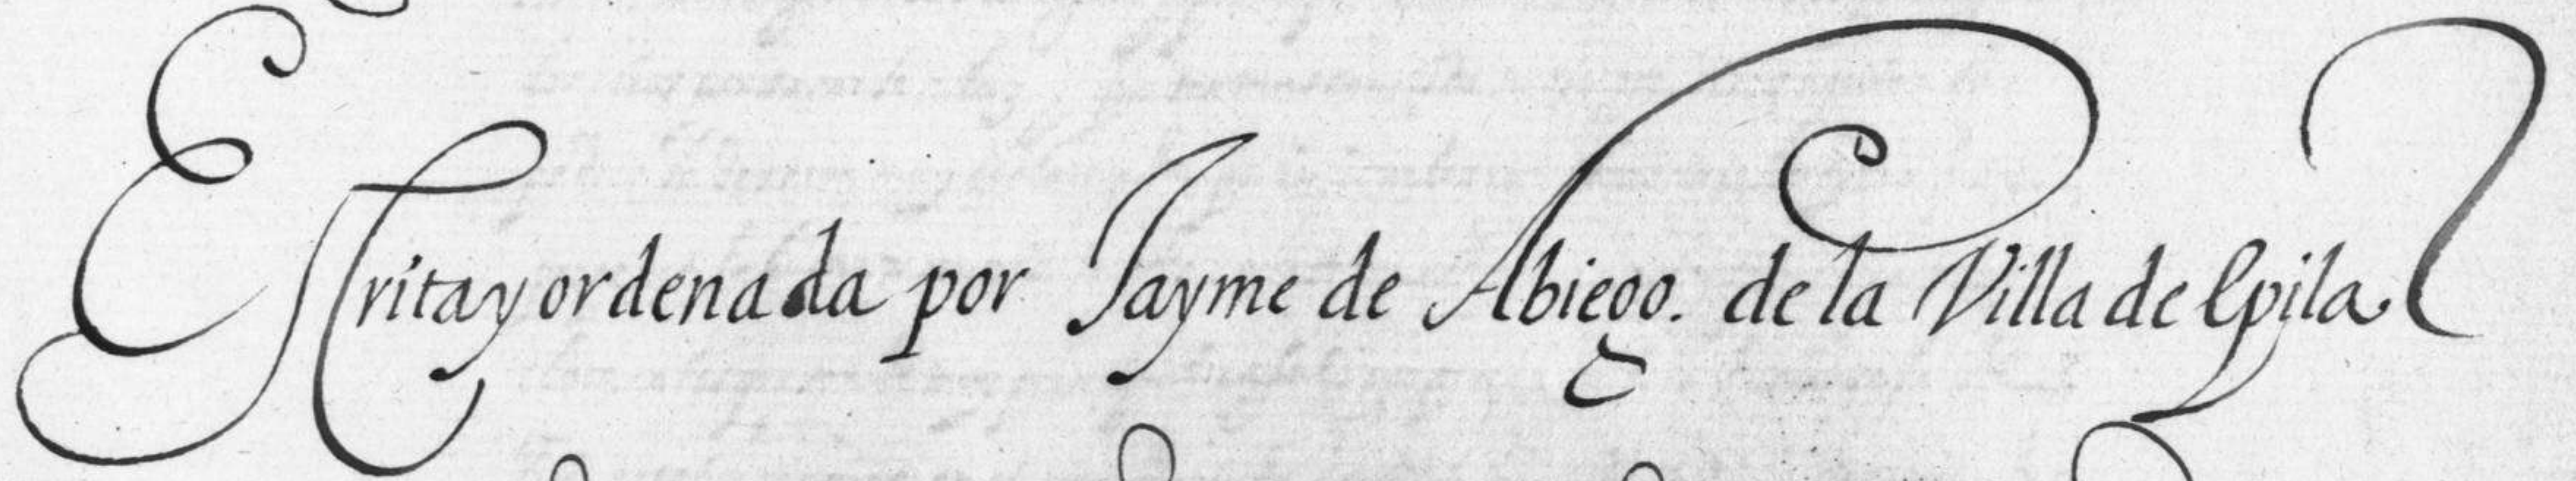 Escrita y ordenada por Jayme de Abiego. de la Villa de Epila